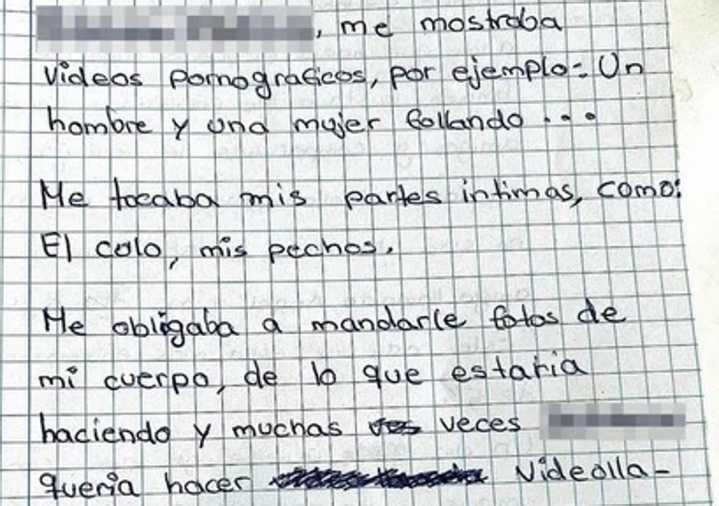 , me mostraba
videos pornograficos, por ejemplo: Un
hombre y una mujer follando ...
Me tocaba mis partes intimas, como:
El colo, mis pechos.
Me obligaba a mandarle fotos de
mi cuerpo, de lo que estaria
haciendo y muchas veces
queria hacer videolla-